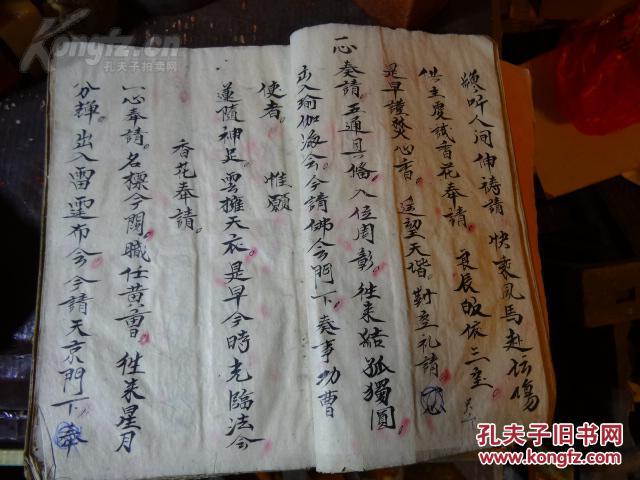 聽听人间伸祷請 快乘風馬赴坛場
供主虔誠香花奉請 衰辰皈依三宝
是早謹焚心香。遥望天谐。對室礼請
一心奏請。五通具俻。八位周彰。徃来結孤獨圓
出入瑜伽海会。今請佛会門下。奏事功曹
使者。 惟願
蓮隨神足。雲擁天衣。是早今時光臨法会
香花奉請。
一心奉請。名摽今闕。職任黄曹。徃来星月
分輝。出入雷霆布令 今請天京門下。奉
Kongfz.cn
孔夫子拍卖网
孔夫子旧书网
www.kongfz.com